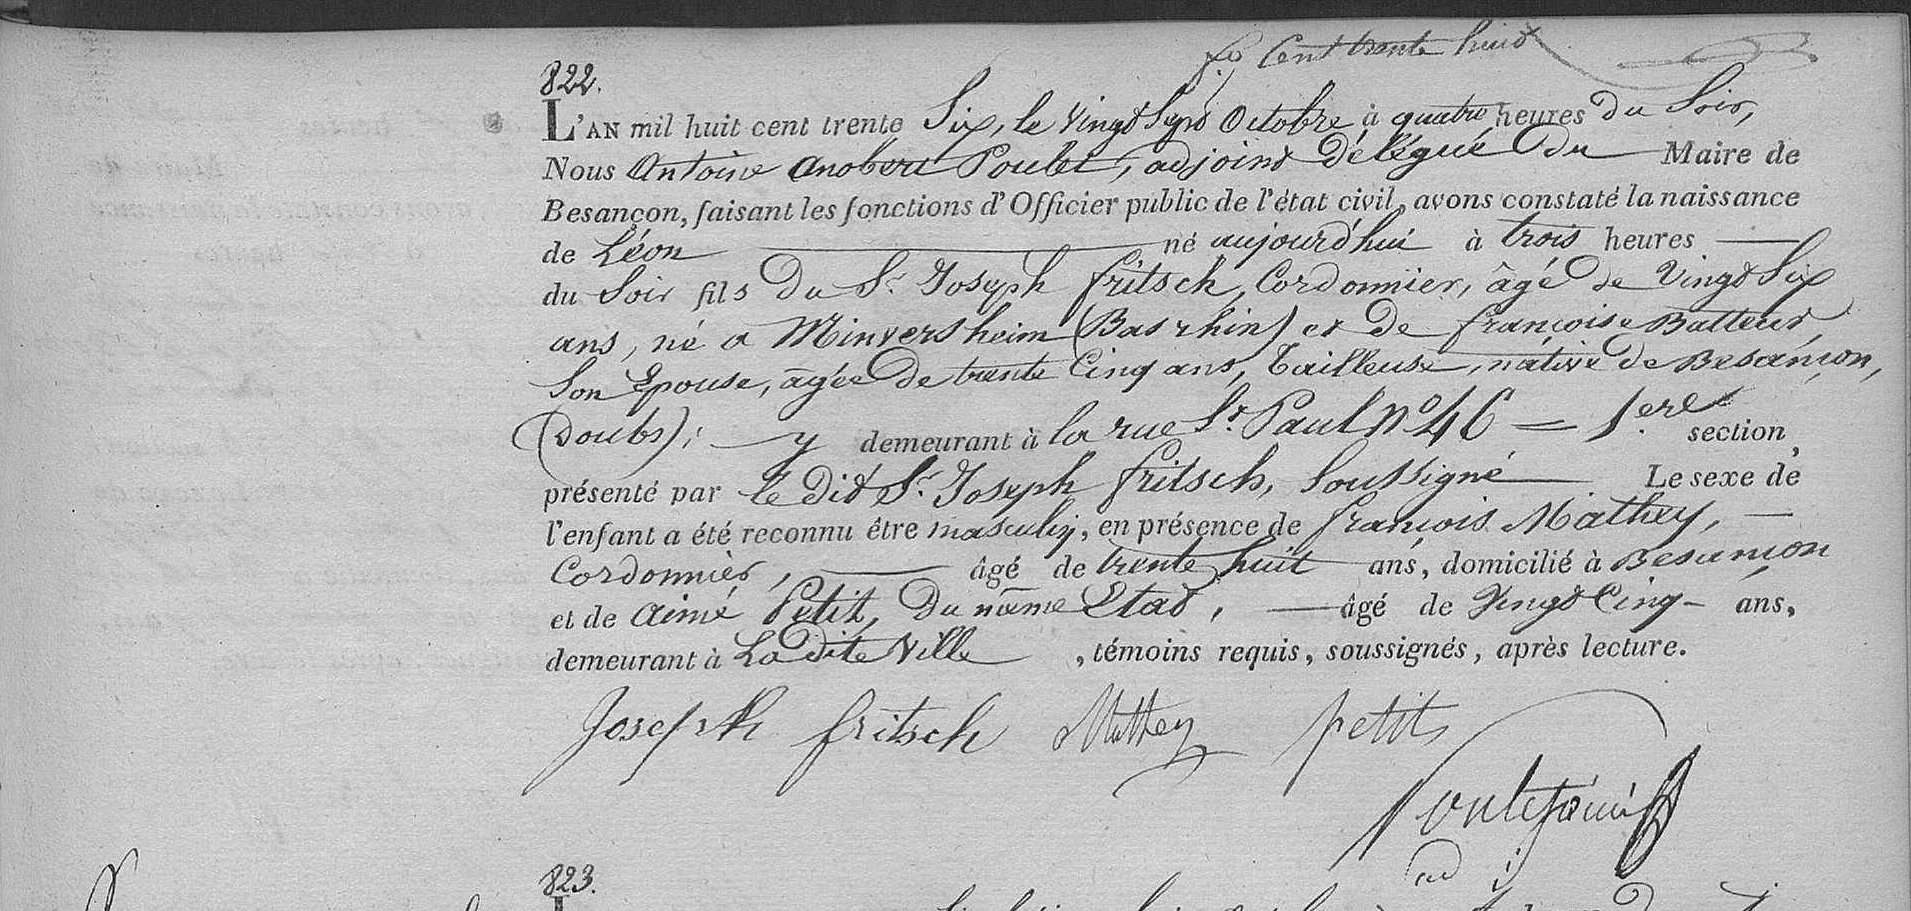 fo. Cent trente huit
822.
L'AN mil huit cent trente Six, le Vingt Sept Octobre à quatre heures du Soir,
Nous Antoine Anobert Poulet, adjoint délégué du Maire de
Besançon, faisant les fonctions d'Officier public de l'état civil, avons constaté la naissance
de Léon né aujourd'hui à trois heures
du Soir fils du Sr. Joseph fritsch, Cordonnier, âgé de Vingt Six
ans, né a Minversheim (Bas rhin) et de françoise Batteur,
Son Epouse, âgée de trente Cinq ans, tailleuse, native de Besançon,
(Doubs); y demeurant à la rue St. Paul no 46 = 1.ere section,
présenté par le dit Sr. Joseph fritsch, Soussigné Le sexe de
l'enfant a été reconnu être masculin, en présence de françois Mathey,
Cordonnier, âgé de trente huit ans, domicilié à Besançon
et de aimé Petit, du même Etat, âgé de Vingt Cinq ans,
demeurant à La dite Ville, témoins requis, soussignés, après lecture.
Joseph fritsch Mathey petit
823.